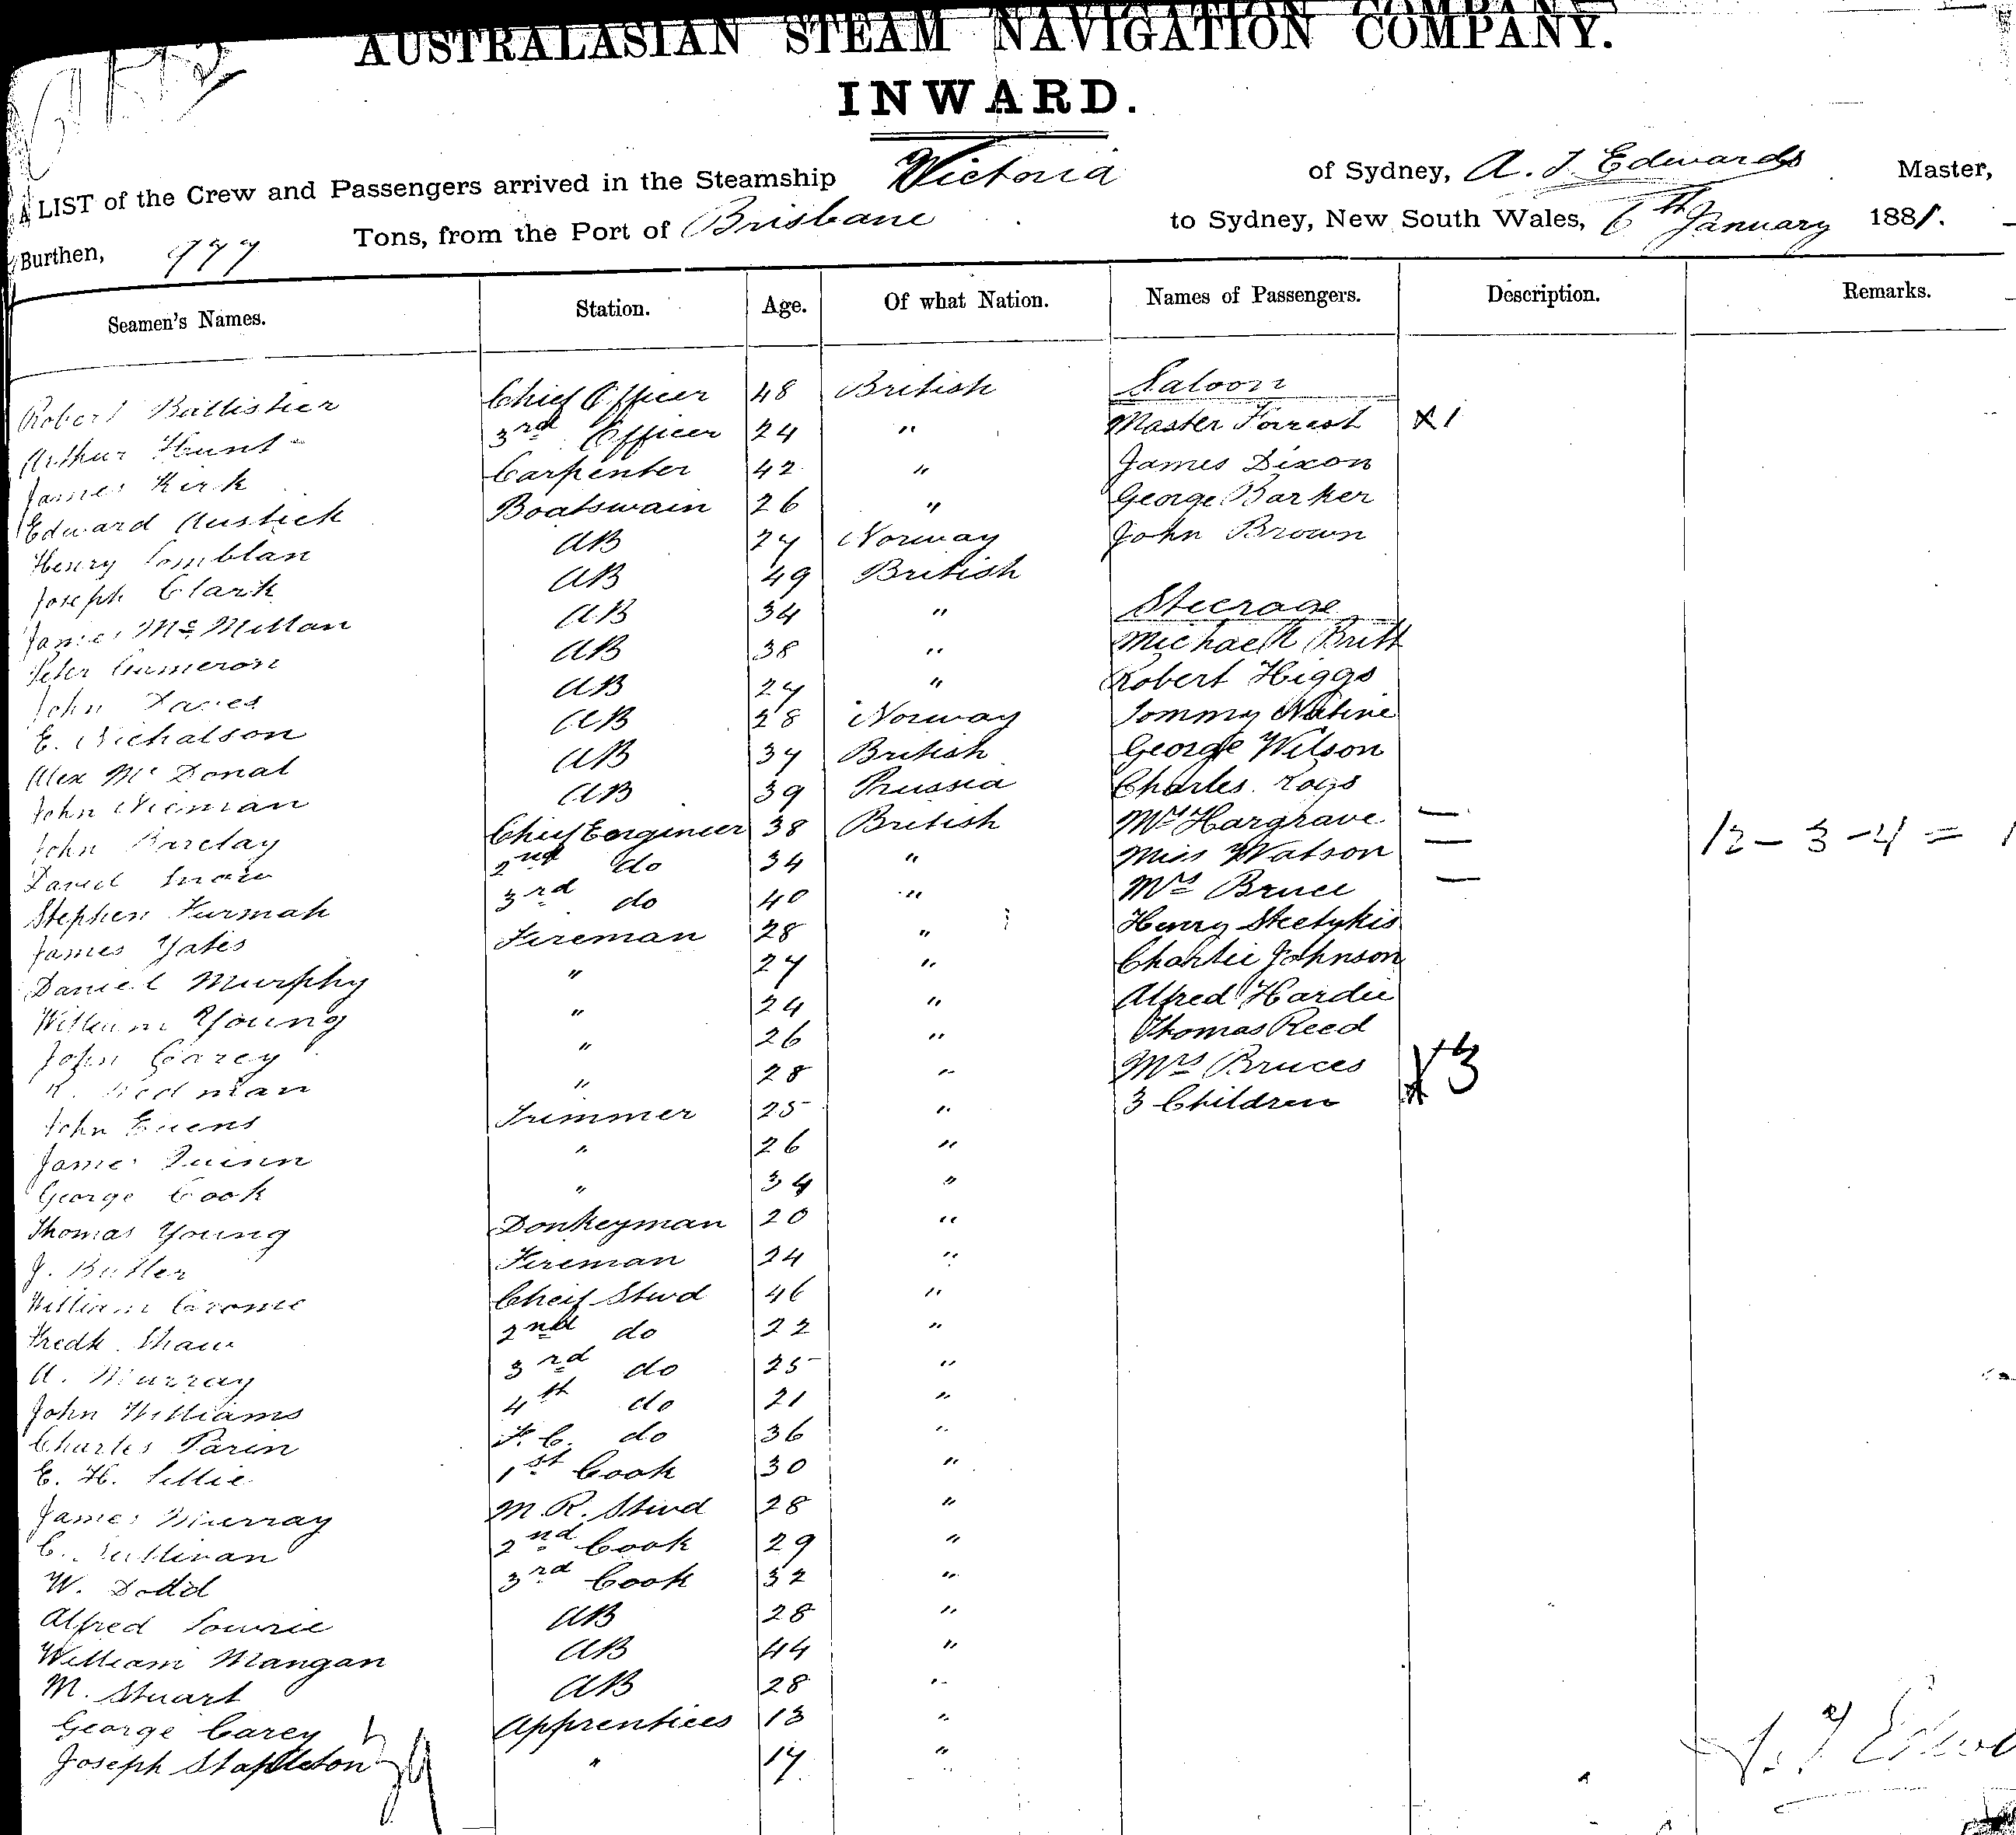 AUSTRALASIAN STEAM NAVIGATION COMPANY.
INWARD.
A LIST of the Crew and Passengers arrived in the Steamship Victoria of Sydney, A. J. Edwards Master,
Burthen, 777 Tons, from the Port of Brisbane to Sydney, New South Wales, 6th January 1881.
Seamen's Names. Station. Age. Of what Nation. Names of Passengers. Description. Remarks.
Robert Chief Officer 48 British Saloon
Arthur Hunt 3rd Officer 24 " Master Forrest X 1
James Kirk Carpenter 42 " James Dixon
Edward Boatswain 26 " George Barker
Henry AB 27 Norway John Brown
Joseph Clark AB 49 British
James McMillan AB 34 " Steerage
Peter Cameron AB 38 " Michael Britt
John AB 27 " Robert Higgs
E. Nicholson AB 28 Norway Tommy Native
Alex McDonal AB 37 British George Wilson
John Nieman AB 39 Prussia Charles
John Barclay Chief Engineer 38 British Mrs Hargrave —
David 2nd do 34 " Miss Watson — 12 - 3 - 4 = 1
Stephen 3rd do 40 " Mrs Bruce —
James Yates Fireman 28 " Henry
Daniel Murphy " 27 " Charlie Johnson
William Young " 24 " Alfred Hardie
John Carey " 26 " Thomas Reed
" 28 " Mrs Bruces
John Trimmer 25 " 3 Children X 3
James Quinn " 26 "
George Cook " 34 "
Thomas Young Donkeyman 20 "
J. Butler Fireman 24 "
William Cheif Stwd 46 "
Fredk. Shaw 2nd do 22 "
A. Murray 3rd do 25 "
John Williams 4th do 21 "
Charles Parin F. C. do 36 "
E. H. 1st Cook 30 "
James Murray M. R. Stwd 28 "
C. Sullivan 2nd Cook 29 "
W. Dodd 3rd Cook 32 "
Alfred Lowrie AB 28 "
William Mangan AB 44 "
M. Stuart AB 28 "
George Carey Apprentices 18 "
Joseph Stapleton " 17 "
39